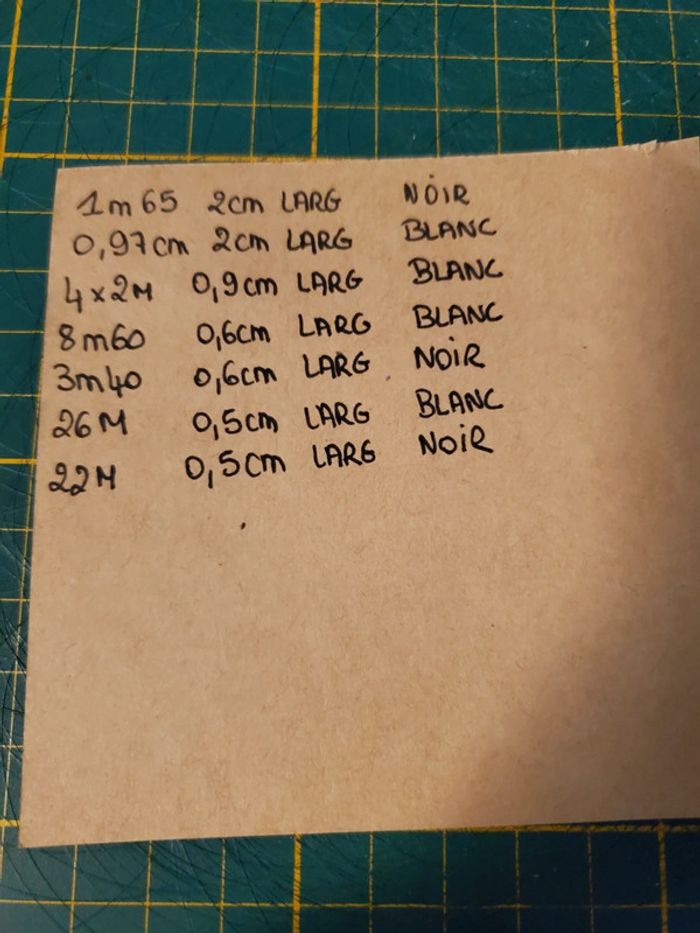 1m65 2cm LARG NOIR
0,97cm 2cm LARG BLANC
4x2M 0,9cm LARG BLANC
8m60 0,6cm LARG BLANC
3m40 0,6cm LARG NOIR
26M 0,5cm LARG BLANC
22M 0,5cm LARG NOIR